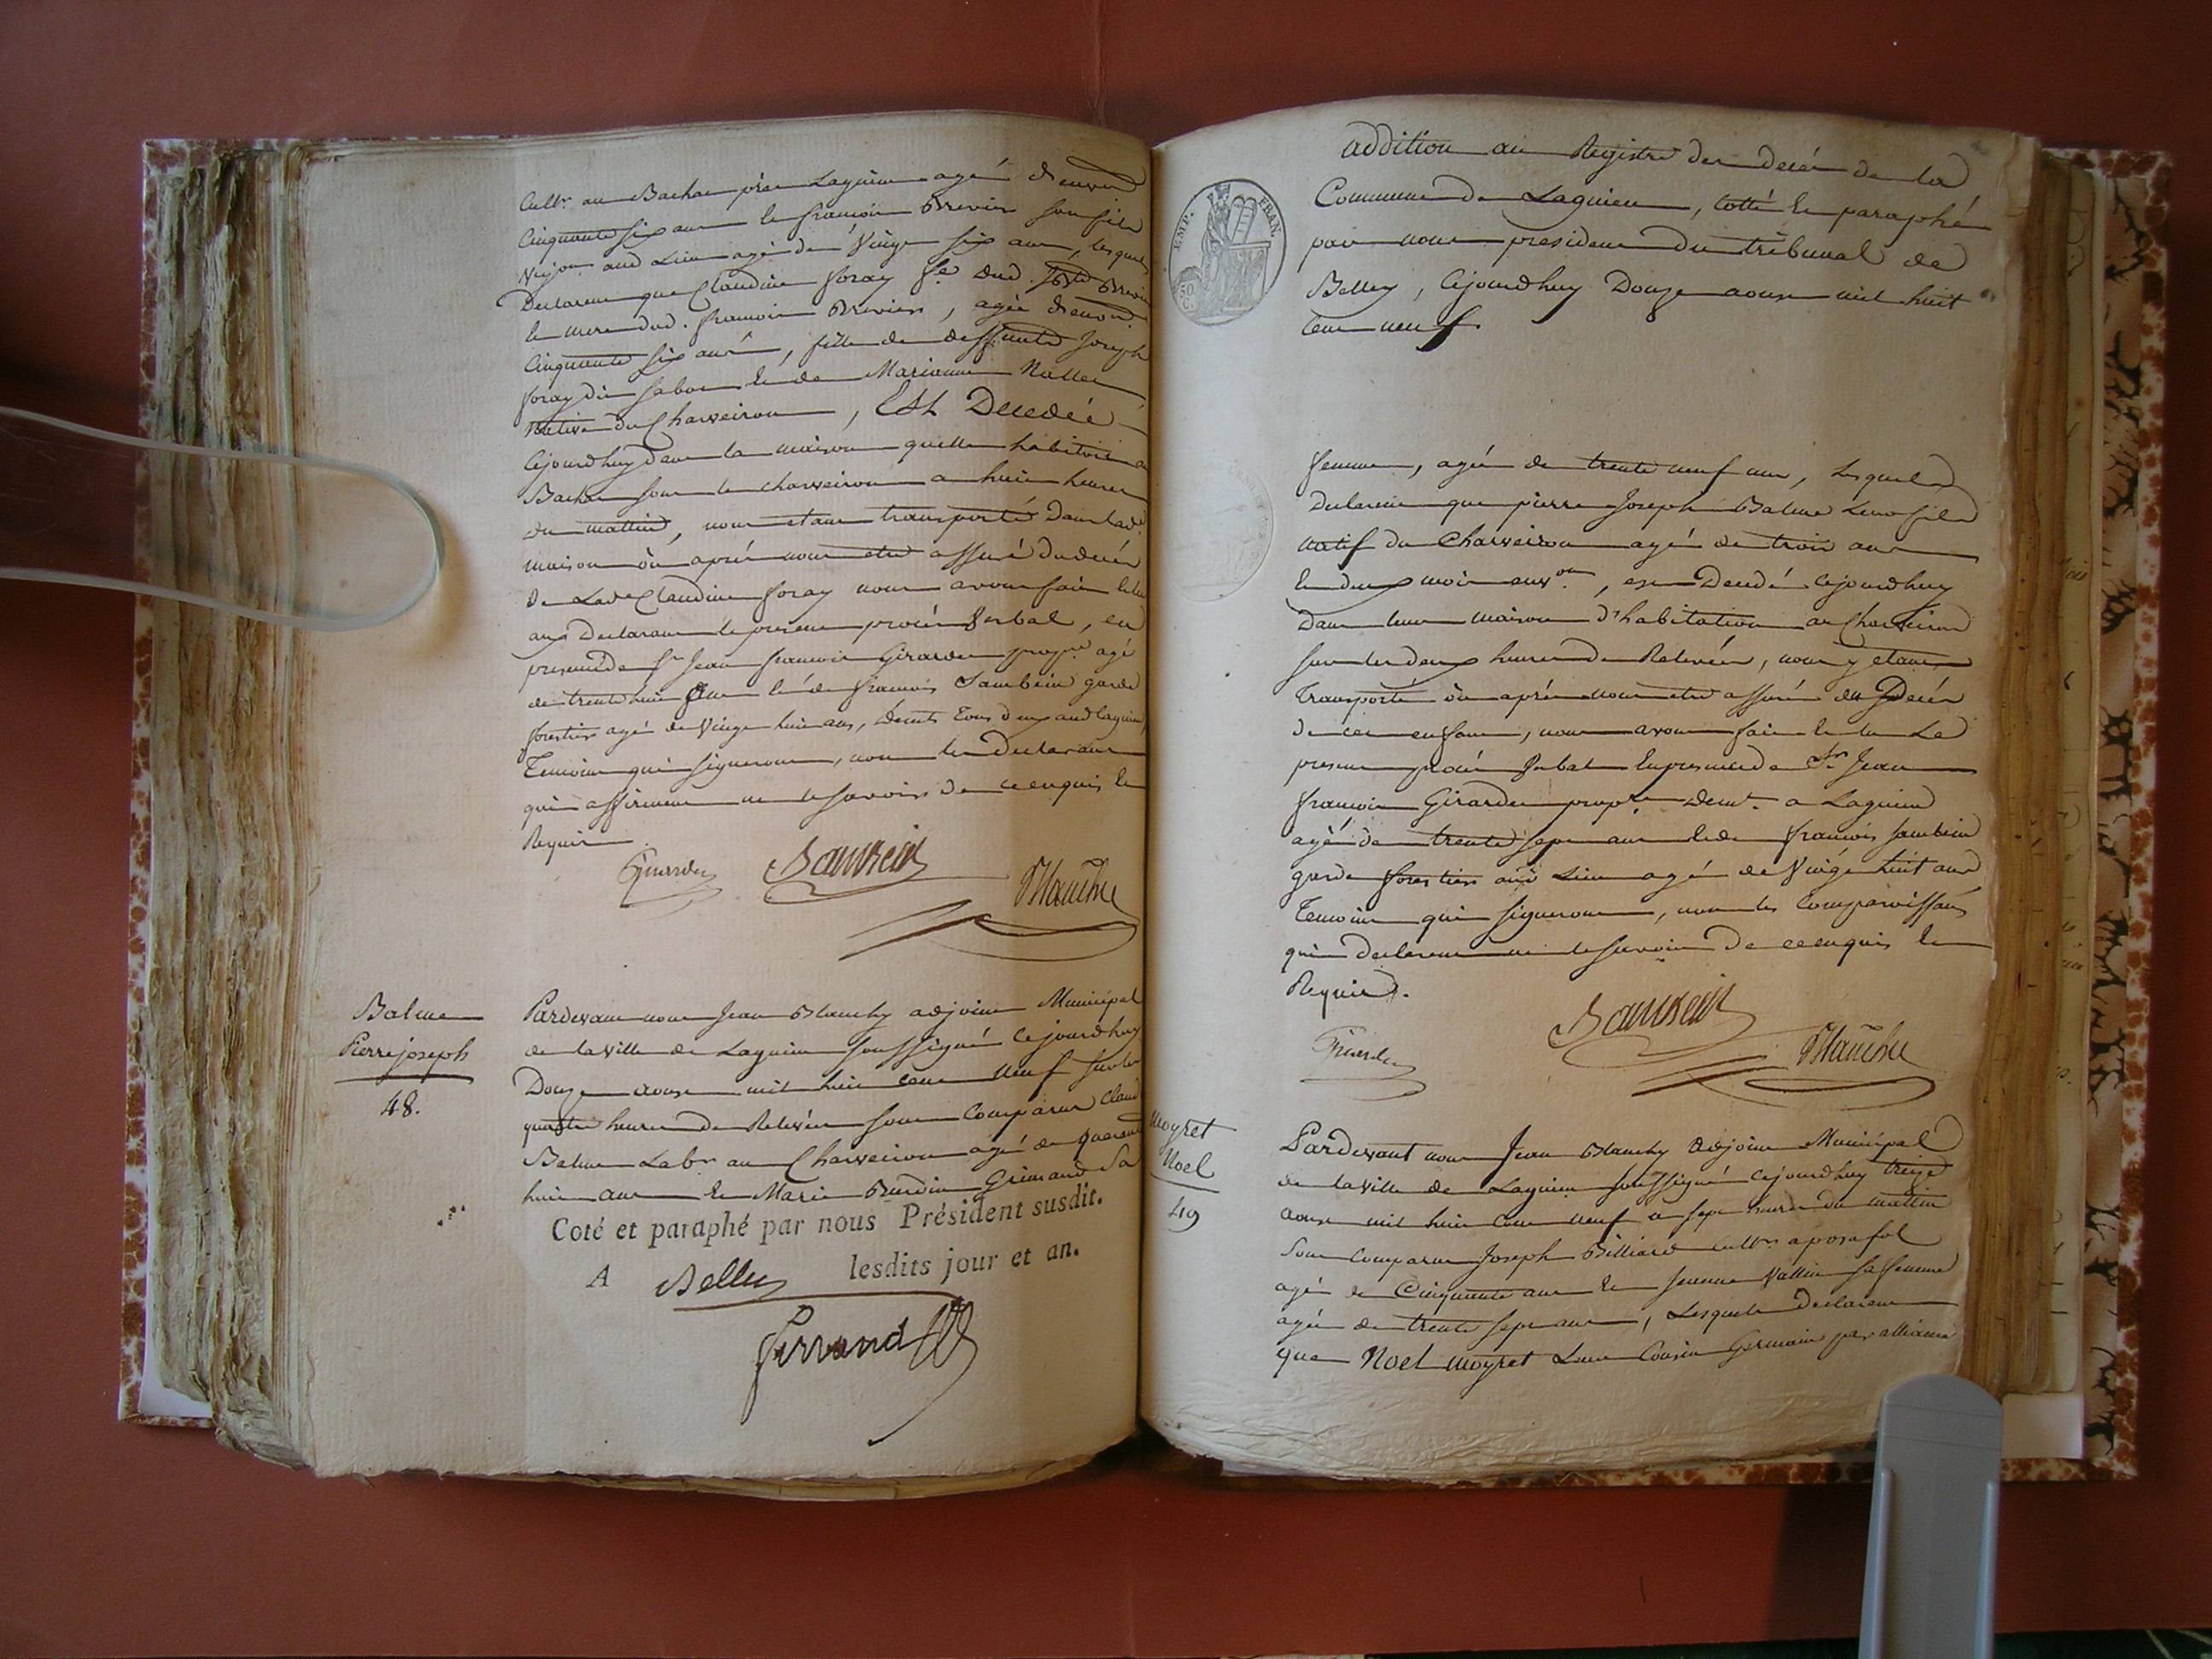 Cultr. au Bachas près Lagnieu agé denviron
Cinquante six ans et françois Brevier son fils
Vigon aud Lieu agé de Vingt six ans, lesquels
Declarent que Claudine foray fe. dud. Brevier
et mere dud. françois Brevier, agée denvon.
Cinquante six ans, fille de deffunts Joseph
foray dit et de Marianne Nallet
Native du Charveiron, Est Decedée
Cejourdhuy dans la maison quelle habitoit a
Bachas sous le charveiron a huit heures
du mattin, nous etant transporté dans lade
maison où après nous etre assuré du decés
de Lade Claudine foray nous avons fait et lu
aux Declarans le present procés Verbal, en
presence de Sr. Jean francois Girardet propre. agé
de trente huit ans et de francois Sambein garde
forestier agé de Vingt huit ans, demts. tous deux aud Lagnieu,
Temoins qui signeront, non les Declarans
qui affirment ne le savoir de ce enquis et
Requis.
Girardet Sambein Blanchy
Balme
Pierre joseph
48.
Pardevant nous Jean Blanchy adjoint Municipal
de la Ville de Lagnieu soussigné Cejourdhuy
Douze aoust mil huit cent neuf sur les
quatre heures de Relevée sont Comparus Claude
Balme Labr. au Charveiron agé de quarante
huit ans et Marie Burdin Grimand Sa
Coté et paraphé par nous Président susdit.
A Belley lesdits jour et an.
Ferrand
EMP. FRAN.
50 C.
addition au Registre des decés de la
Commune de Lagnieu, cotté et paraphé
par nous president du tribunal de
Belley, Cejourdhuy Douze aoust mil huit
Cent neuf.
femme, agée de trente neuf ans, Lesquels
Declarent que pierre Joseph Balme Leur fils
natif du Charveiron agé de trois ans
et deux mois environ, est Decedé cejourdhuy
Dans leur maison d'habitation au Charveiron
sur les deux heures de Relevée, nous y etant
Transporté où après nous etre assuré du Decés
de cet enfant, nous avons fait et lu Le
present procés Verbal En presence de Sr. Jean
francois Girardet propre. demt. a Lagnieu
agé de trente sept ans et de francois Sambein
garde forestier aud Lieu agé de Vingt huit ans
Temoins qui signeront, non les Comparoissans
qui declarent ne le savoir de ce enquis et
Requis.
Girardet Sambein Blanchy
moyret
Noel
49
Pardevant nous Jean Blanchy adjoint Municipal
de la Ville de Lagnieu soussigné cejourdhuy treize
aoust mil huit Cent neuf a sept heures du mattin
sont Comparus Joseph Billiard cultr. a posafol
agé de Cinquante ans et Jeanne Vallin sa femme
agée de trente sept ans, Lesquels declarent
que Noel moyret Leur Cousin Germain par alliance